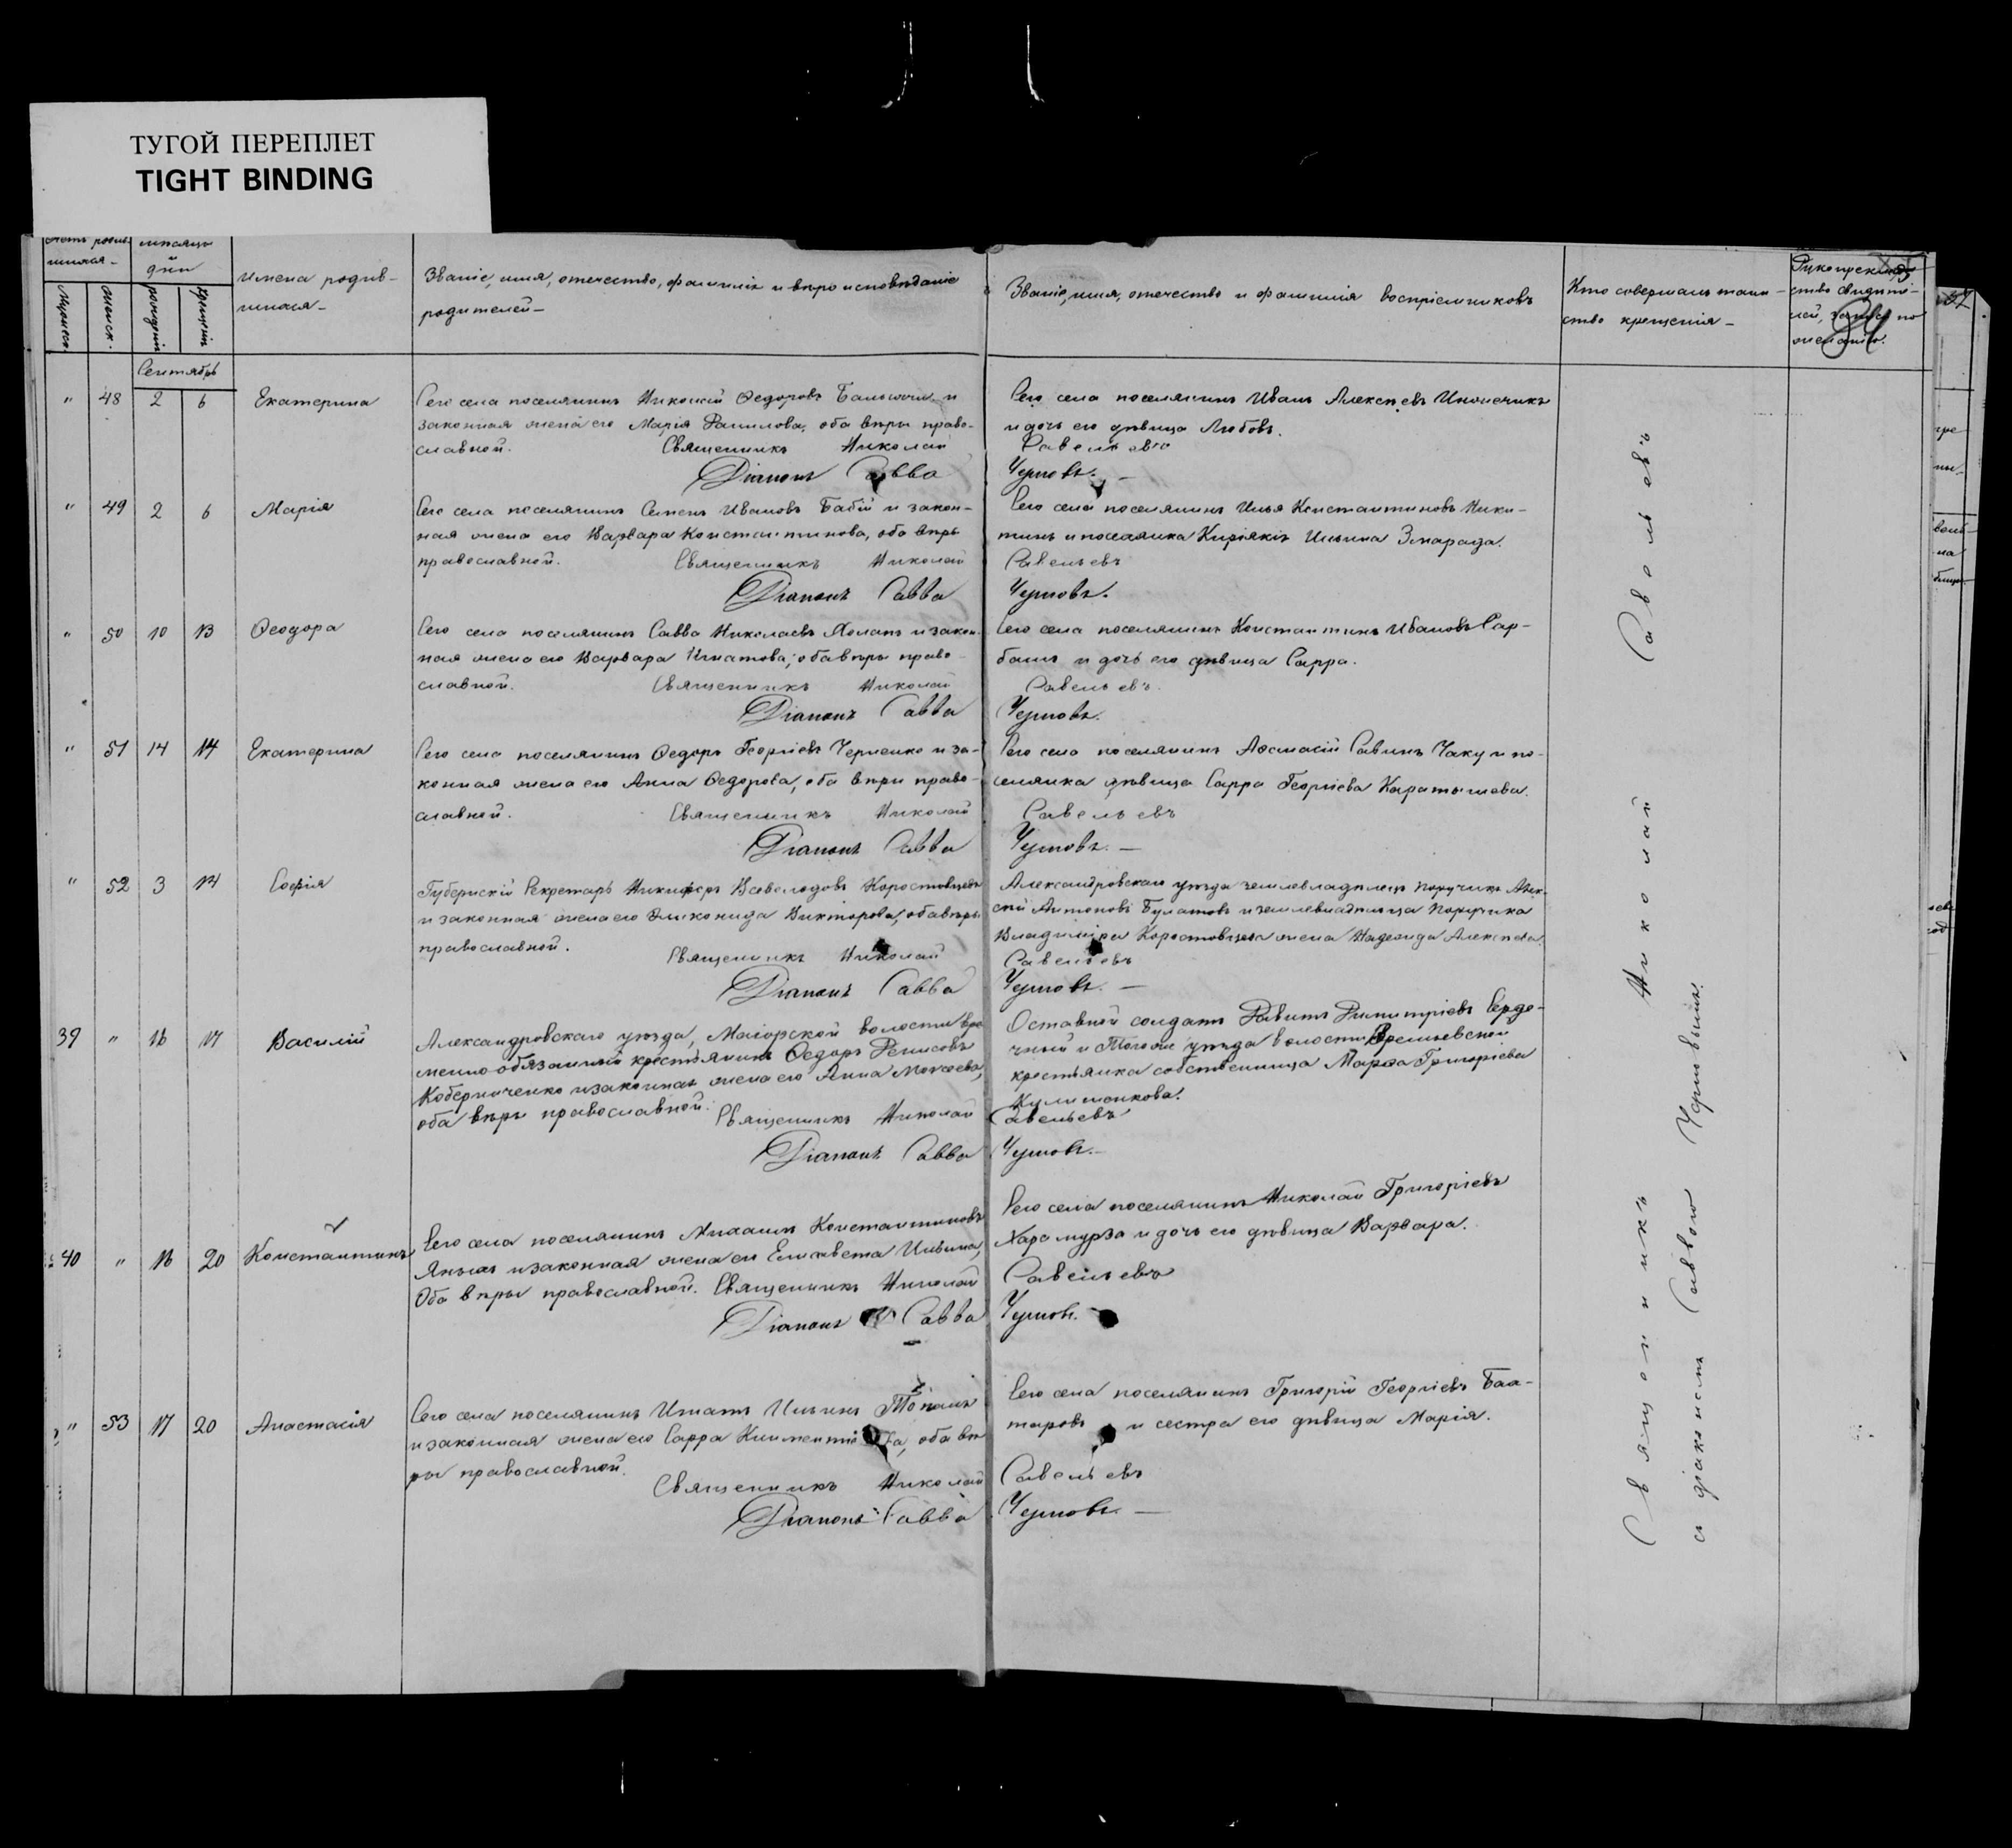 ТУГОЙ ПЕРЕПЛЕТ
TIGHT BINDING
Имена родив-
шихся -
Званіе, имя, отечество, фамилія и вѣроисповѣданіе
родителей -
Званіе, имя, отечество и фамилія воспріемниковъ
Кто совершалъ таин-
ство крещенія -
мѣсяцъ
дни
Мужеск.
женск.
рожденія
крещенія
Сентябрь
" 48 2 6 Екатерина
Сего села поселянинъ Николай Ѳедоровъ и
законная жена его Марія Данилова, оба вѣры право-
славной. Священникъ Николай Савельевъ
Діаконъ Савва Черновъ. -
Сего села поселянинъ Иванъ Алексѣевъ
и дочь его дѣвица Любовь.
" 49 2 6 Марія
Сего села поселянинъ Семенъ Ивановъ Бабій и закон-
ная жена его Варвара Константинова, оба вѣры
православной. Священникъ Николай Савельевъ
Діаконъ Савва Черновъ.
Сего села поселянинъ Илья Константиновъ Ники-
тинъ и поселянка Киріякія Ильина Змарада.
" 50 10 13 Ѳеодора
Сего села поселянинъ Савва Николаевъ и закон-
ная жена его Варвара Игнатова, оба вѣры право-
славной. Священникъ Николай Савельевъ.
Діаконъ Савва Черновъ.
Сего села поселянинъ Константинъ Ивановъ Сар-
башъ и дочь его дѣвица Сарра.
" 51 14 14 Екатерина
Сего села поселянинъ Ѳедоръ Георгіевъ Черненко и за-
конная жена его Анна Ѳедорова, оба вѣры право-
славной. Священникъ Николай Савельевъ
Діаконъ Савва Черновъ. -
Сего села поселянинъ Аѳанасій Савинъ Чаку и по-
селянка дѣвица Сарра Георгіева
" 52 3 14 Софія
Губернскій Секретарь Никифоръ Всеволодовъ Коростовцевъ
и законная жена его Викторова, оба вѣры
православной. Священникъ Николай Савельевъ
Діаконъ Савва Черновъ. -
Александровскаго уѣзда землевладѣлецъ поручикъ Алек-
сѣй Антоновъ Булатовъ и землевладѣлица поручика
Владиміра Коростовцева жена Надежда Алексѣева.
39 " 16 17 Василій
Александровскаго уѣзда, Маіорской волости вре
менно-обязанный крестьянинъ Ѳедоръ Денисовъ
Коберниченко и законная жена его Анна Моисеева,
оба вѣры православной. Священникъ Николай Савельевъ
Діаконъ Савва Черновъ. -
Отставной солдатъ Давидъ Димитріевъ Серде-
чный и того же уѣзда волости
крестьянка собственница Марѳа Григорьева
Кулишенкова.
40 " 16 20 Константинъ
Сего села поселянинъ Михаилъ Константиновъ
и законная жена его Елисавета Ильина,
Оба вѣры православной. Священникъ Николай Савельевъ
Діаконъ Савва Черновъ.
Сего села поселянинъ Николай Григоріевъ
Харамурза и дочь его дѣвица Варвара.
" 53 17 20 Анастасія
Сего села поселянинъ Игнатъ Ильинъ Топалъ
и законная жена его Сарра оба вѣ
ры православной. Священникъ Николай Савельевъ
Діаконъ Савва Черновъ. -
Сего села поселянинъ Григорій Георгіевъ Баа-
таровъ и сестра его дѣвица Марія.
Священникъ Николай Савельевъ
съ діакономъ Саввою Черновымъ.